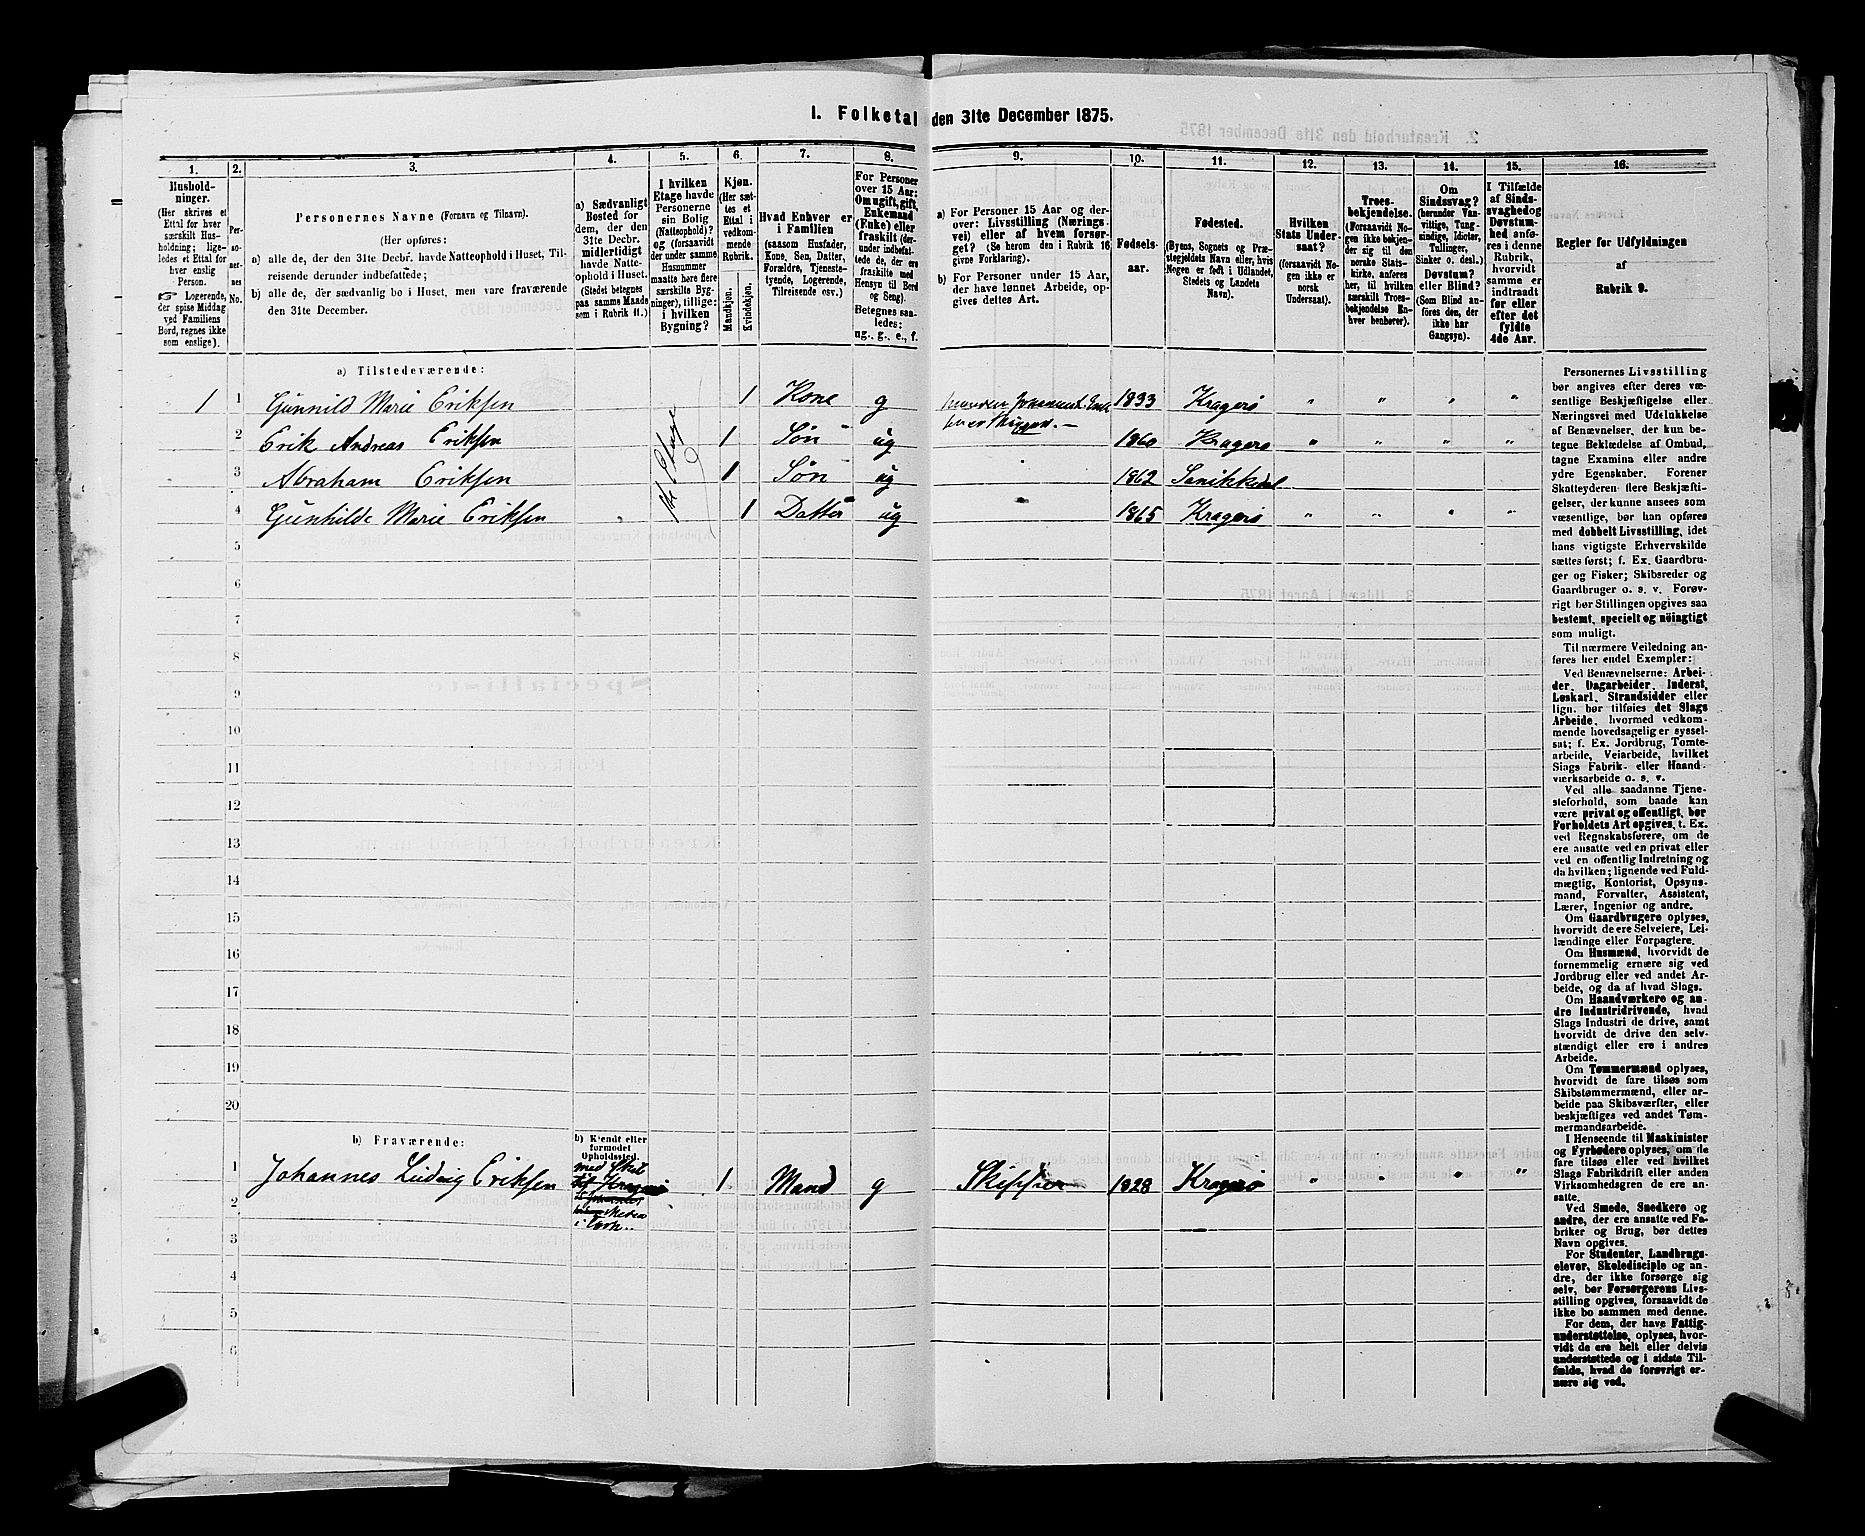 I. Folketal den 31te December 1875.
1.
Hushold-
ninger.
(Her skrives et
Ettal for hver
særskilt Hus-
holdning; lige-
ledes et Ettal for
hver enslig
Person.
Logerende,
der spise Middag
ved Familiens
Bord, regnes ikke
som enslige).
2.
Per-
so-
ner-
nes
No.
3.
Personernes Navne (Fornavn og Tilnavn).
(Her opføres:
a) alle de, der den 31te Decbr. havde Natteophold i Huset, Til-
reisende derunder indbefattede;
b) alle de, der sædvanlig bo i Huset, men vare fraværende
den 31te December.
4.
a) Sædvanligt
Bosted for
dem, der den
31te Decbr.
midlertidigt
havde Natte-
ophold i Huset.
(Stedet betegnes
paa samme Maade
som i Rubrik 11.)
5.
I hvilken
Etage havde
Personerne
sin Bolig
(Natteophold)?
og (forsaavidt
der under samme
Husnummer
maatte høre flere
særskilte Byg-
ninger), tillige:
i hvilken
Bygning?
6.
Kjøn.
(Her sæt-
tes et
Ettal i
vedkom-
mende
Rubrik.
Mandkjøn.
Kvindekjøn.
7.
Hvad Enhver er
i Familien
(saasom Husfader,
Kone, Søn, Datter,
Forældre, Tjeneste-
tyende, Logerende,
Tilreisende osv.)
8.
For Personer
over 15 Aar:
Om ugift, gift,
Enkemand
(Enke) eller
fraskilt (der-
under indbefat-
tede de, der ere
fraskilte med
Hensyn til Bord
og Seng).
Betegnes saa-
ledes:
ug., g., e., f.
9.
a) For Personer 15 Aar og der-
over: Livsstilling (Nærings-
vei) eller af hvem forsør-
get? (Se herom den i Rubrik 16
givne Forklaring).
b) For Personer under 15 Aar,
der have lønnet Arbeide, op-
gives dettes Art.
10.
Fødsels-
aar.
11.
Fødested.
(Byens, Sognets og Præ-
stegjeldets Navn, eller, hvis
Nogen er født i Udlandet,
Stedets og Landets
Navn).
12.
Hvilken
Stats Under-
saat?
(forsaavidt No-
gen ikke er
norsk
Undersaat).
13.
Troes-
bekjendelse.
(Forsaavidt No-
gen ikke bekjen-
der sig til den
norske Stats-
kirke, anføres
her, til hvilken
særskilt Troes-
bekjendelse En-
hver henhører).
14.
Om
Sindssvag?
(herunder Van-
vittige, Tung-
sindige, Idioter,
Tullinger,
Sinker o. desl.)
Døvstum?
eller Blind?
(Som Blind an-
føres den, der
ikke har
Gangsyn).
15.
I Tilfælde
af Sinds-
svaghed og
Døvstum-
hed anfø-
res i denne
Rubrik,
hvorvidt
samme er
indtraadt
før eller
efter det
fyldte
4de Aar.
16.
Regler for Udfyldningen
af
Rubrik 9.
a) Tilstedeværende:
1 1 Gunnild Marie Eriksen 1 Kone g 1833 Kragerø " " " "
2 Erik Andreas Eriksen 1 Søn ug 1860 Kragerø " " " "
3 Abraham Eriksen 1 Søn ug " 1862 Sanikkedal
4 Gunhilde Marie Eriksen 1 Datter ug " 1865 Kragerø " " " "
5
6
7
8
9
10
11
12
13
14
15
16
17
18
19
20
b) Fraværende:
b) Kjendt eller
formodet
Opholdssted.
1 Johannes Ludvig Eriksen 1 Mand g Skipper 1828 Kragerø " " " "
2
3
4
5
6
Personernes Livsstilling
bør angives efter deres væ-
sentlige Beskjæftigelse eller
Næringsvei med Udelukkelse
af Benævnelser, der kun be-
tegne Beklædelse af Ombud,
tagne Examina eller andre
ydre Egenskaber. Forener
Skatteyderen flere Beskjæfti-
gelser, der kunne ansees som
væsentlige, bør han opføres
med dobbelt Livsstilling, idet
hans vigtigste Erhvervskilde
sættes først; f. Ex. Gaardbru-
ger og Fisker; Skibsreder og
Gaardbruger o. s. v. Forøv-
rigt bør Stillingen opgives saa
bestemt, specielt og nøiagtigt
som muligt.
Til nærmere Veiledning an-
føres her endel Exempler:
Ved Benævnelserne: Arbei-
der, Dagarbeider, Inderst,
Løskarl, Strandsidder eller
lign. bør tilføies det Slags
Arbeide, hvormed vedkom-
mende hovedsagelig er syssel-
sat; f. Ex. Jordbrug, Tomte-
arbeide, Veiarbeide, hvilket
Slags Fabrik- eller Haand-
værksarbeide o. s. v.
Ved alle saadanne Tjene-
steforhold, som baade kan
være privat og offentligt, bør
Forholdets Art opgives, t. Ex.
ved Regnskabsførere, om de
ere ansatte ved en privat eller
ved en offentlig Indretning og
da hvilken; lignende ved Fuld-
mægtig, Kontorist, Opsyns-
mand, Forvalter, Assistent,
Lærer, Ingeniør og andre.
Om Gaardbrugere oplyses,
hvorvidt de ere Selveiere, Lei-
lændinge eller Forpagtere.
Om Husmænd, hvorvidt de
fornemmelig ernære sig ved
Jordbrug eller ved andet Ar-
beide, og da af hvad Slags.
Om Haandværkere og an-
dre Industridrivende, hvad
Slags Industri de drive, samt
hvorvidt de drive den selv-
stændigt eller ere i andres
Arbeide.
Om Tømmermænd oplyses,
hvorvidt de fare tilsøs som
Skibstømmermænd, eller ar-
beide paa Skibsværfter, eller
beskjæftiges ved andet Tøm-
mermandsarbeide.
I Henseende til Maskinister
og Fyrbødere oplyses, om de
fare tilsøs eller ved hvilket
Slags Fabrikdrift eller anden
Virksomhedsgren de ere an-
satte.
Ved Smede, Snedkere og
andre, der ere ansatte ved Fa-
briker og Brug, bør dettes
Navn opgives.
For Studenter, Landbrugs-
elever, Skoledisciple og an-
dre, der ikke forsørge sig
selv, bør Forsørgerens Livs-
stilling opgives, forsaavidt de
ikke bo sammen med denne.
For dem, der have Fattig-
understøttelse, oplyses, hvor-
vidt de ere helt eller delvis
understøttede og i sidste Til-
fælde, hvad de forøvrigt er-
nære sig ved.